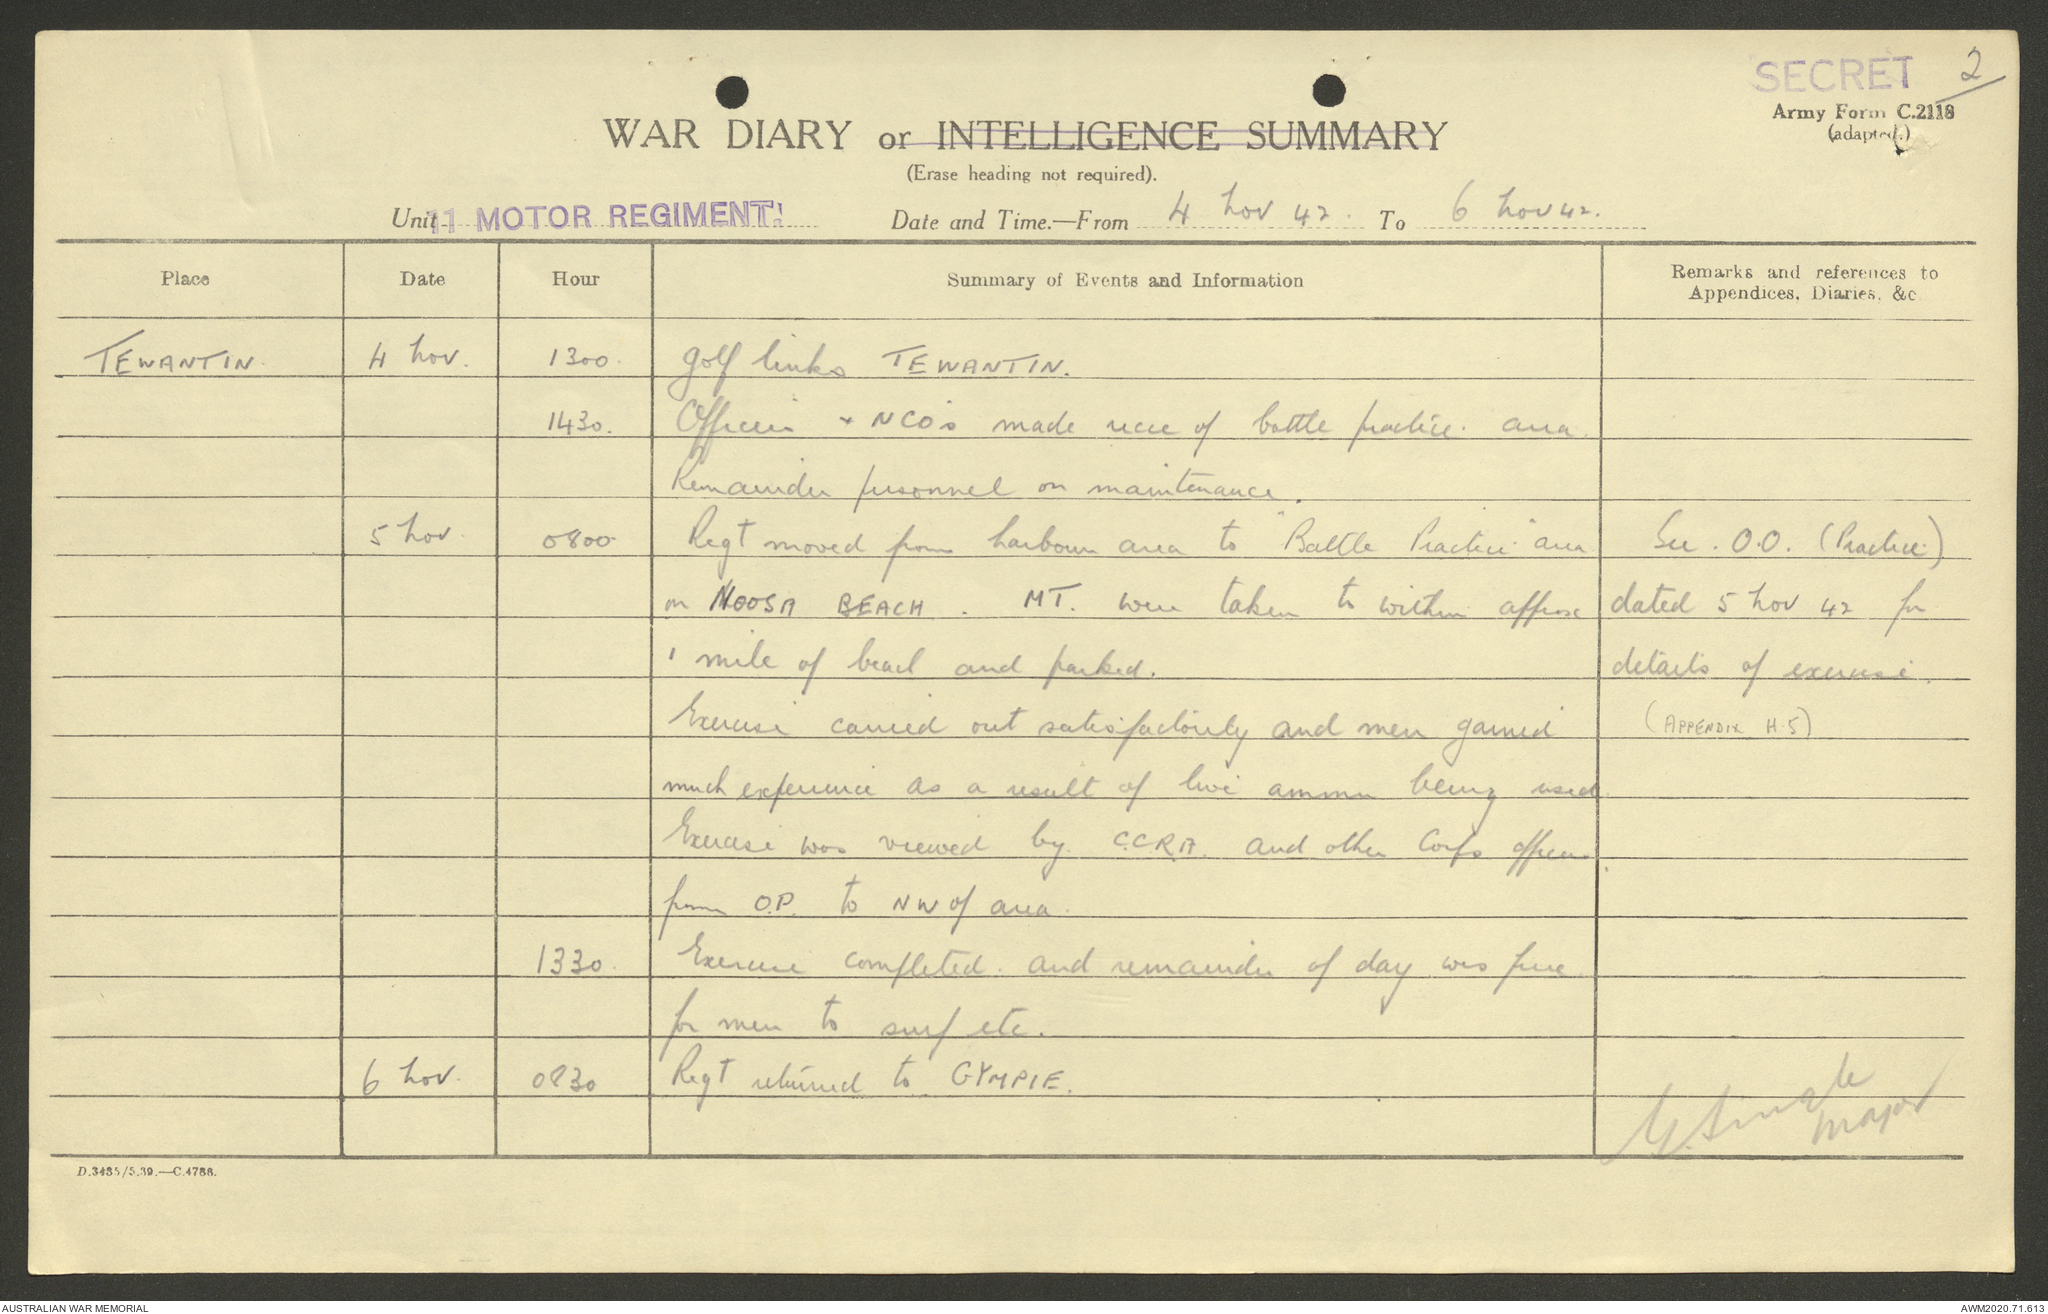 SECRET 2
Army Form C.2118
(adapted.)
WAR DIARY or INTELLIGENCE SUMMARY
(Erase heading not required).
Unit 11 MOTOR REGIMENT. Date and Time.—From 4 Nov 42. To 6 Nov 42.
Place Date Hour Summary of Events and Information Remarks and references to
Appendices, Diaries, &c
TEWANTIN. 4 Nov. 1300. golf links TEWANTIN.
1430. Officers + NCO's made recce of battle practice area.
Remainder personnel on maintenance.
5 Nov. 0800 Regt moved from harbour area to "Battle Practice" area See. O.O. (Practice)
on NOOSA BEACH. MT. were taken to within approx dated 5 Nov 42 for
1 mile of beach and parked. details of exercise.
Exercise carried out satisfactorily and men gained (APPENDIX H.5)
much experience as a result of live ammn being used.
Exercise was viewed by C.C.R.A. and other Corps officers
from O.P. to NW of area.
1330. Exercise completed. and remainder of day was free
for men to surf etc.
6 Nov. 0830 Regt returned to GYMPIE.
Major
D.3485/5.39.—C.4788.
AUSTRALIAN WAR MEMORIAL AWM2020.71.613